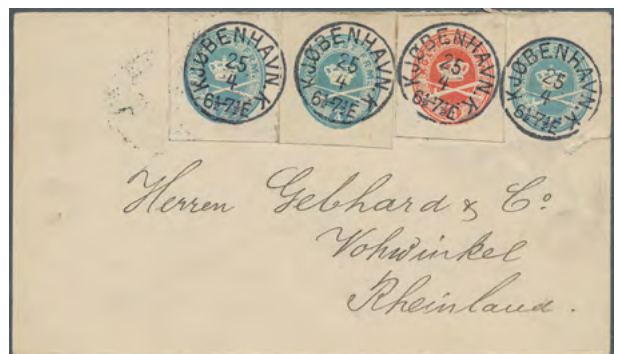 KJØBENHAVN.K
25
4
6½-7½E
KJØBENHAVN.K
25
4
6½-7½E
KJØBENHAVN.K
25
4
6½-7½E
KJØBENHAVN.K
25
4
6½-7½E
Herren Gebhard & Co
Vohwinkel
Rheinland.